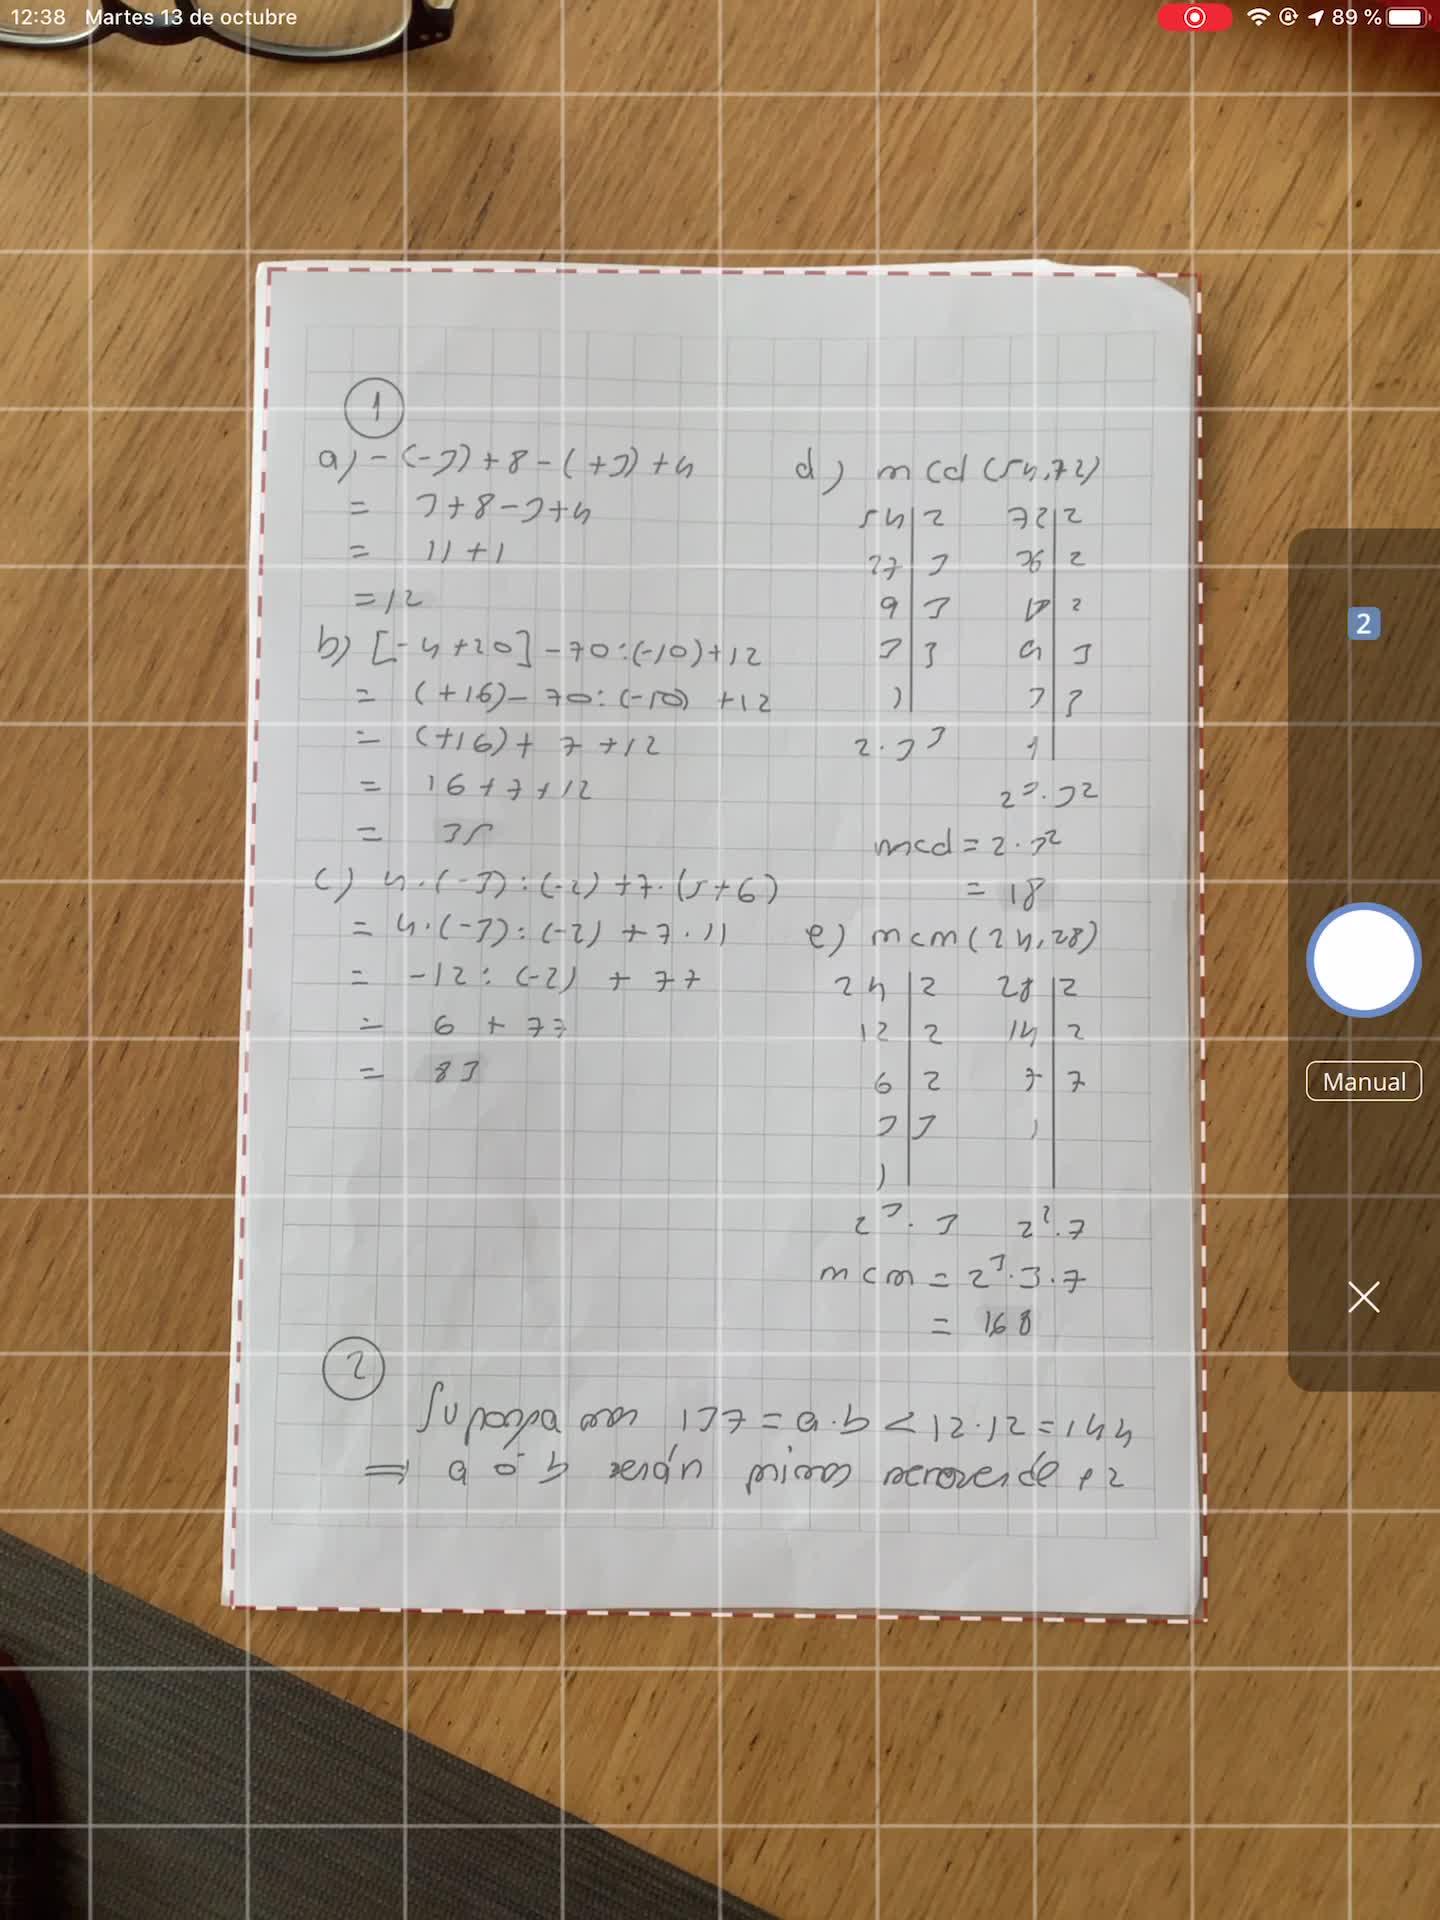 12:38 Martes 13 de octubre
89 %
1
a) -(-3)+8-(+3)+4
= 3+8-3+4
= 11+1
=12
b) [-4+20]-70:(-10)+12
= (+16)-70:(-10)+12
= (+16)+7+12
= 16+7+12
= 35
c) 4·(-3):(-2)+7·(5+6)
= 4·(-3):(-2)+7·11
= -12:(-2)+77
= 6+77
= 83
d) mcd(54,72)
54|2 72|2
27|3 36|2
9|3 18|2
3|3 9|3
1| 3|3
2·3³ 1|
2³·3²
mcd=2·3²
= 18
e) mcm(24,28)
24|2 28|2
12|2 14|2
6|2 7|7
3|3 1
1|
2³·3 2²·7
mcm=2³·3·7
= 168
2
Supongamos 137=a·b<12·12=144
⇒ a ó b serán primos menores de 12
2
Manual